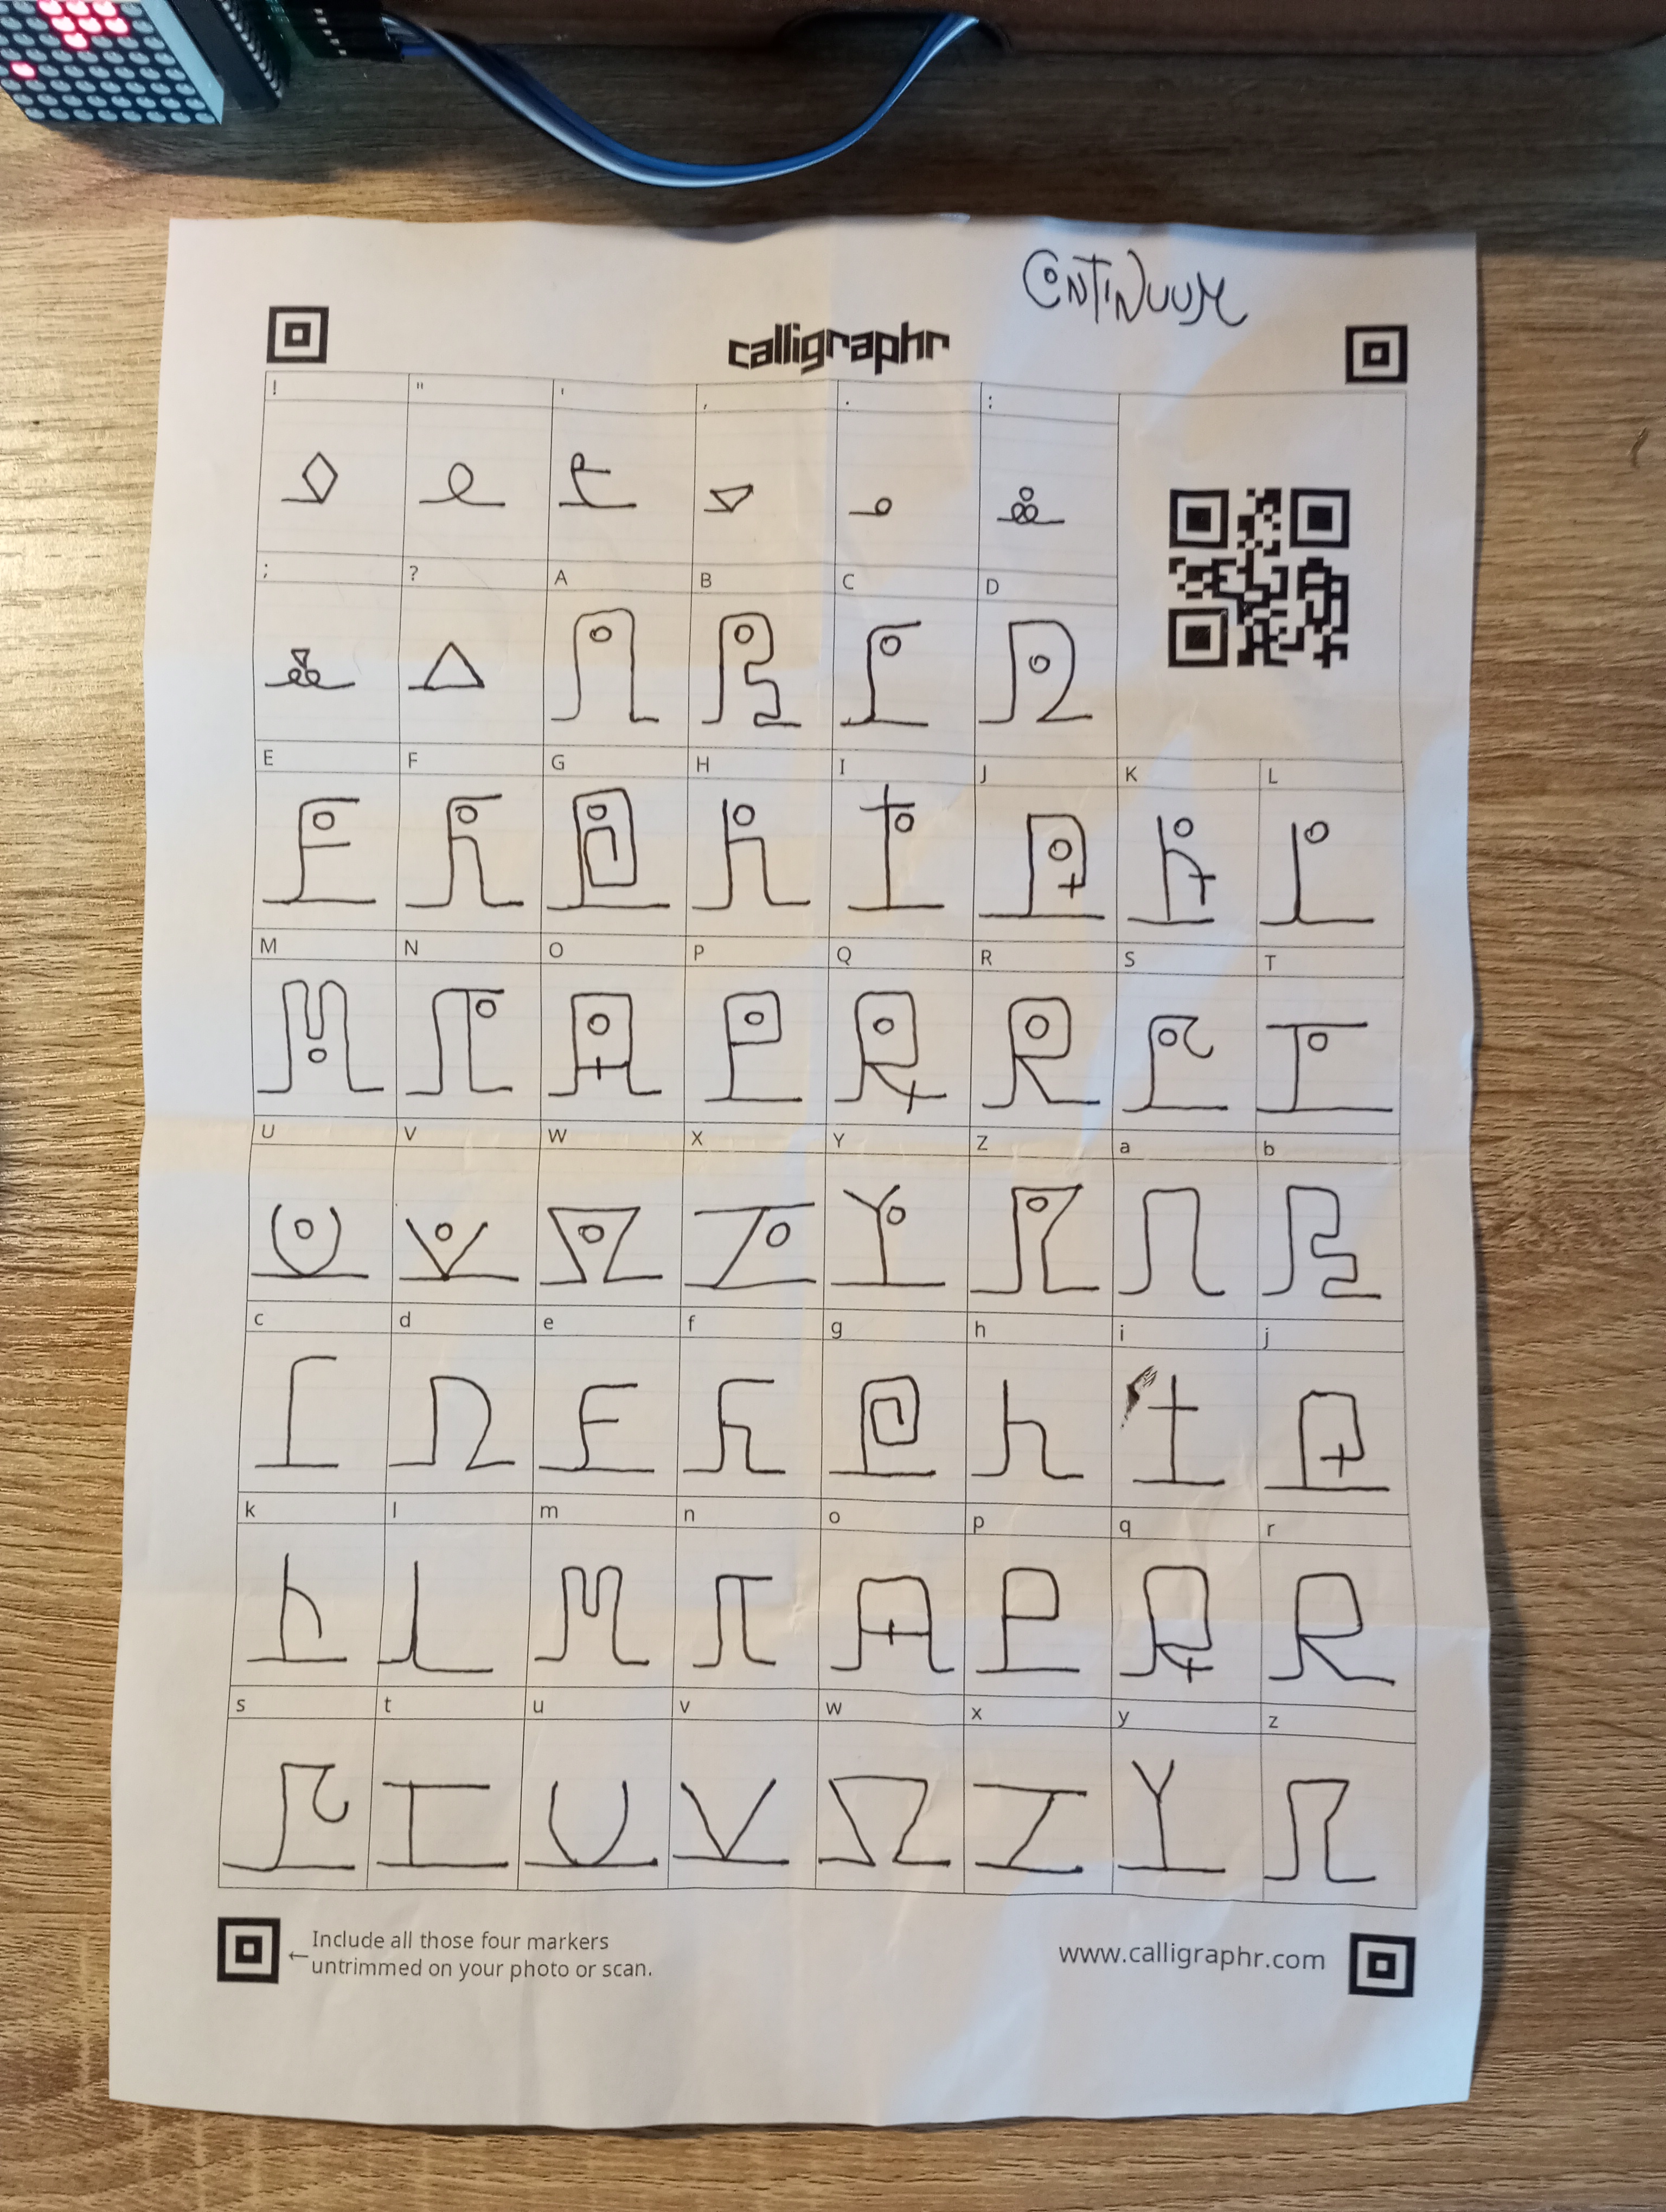 CONTINUUM
calligraphr
! " ' , . :
; ? A B C D
E F G H I J K L
M N O P Q R S T
U V W X Y Z a b
c d e f g h i j
k l m n o p q r
s t u v w x y z
← Include all those four markers
untrimmed on your photo or scan.
www.calligraphr.com